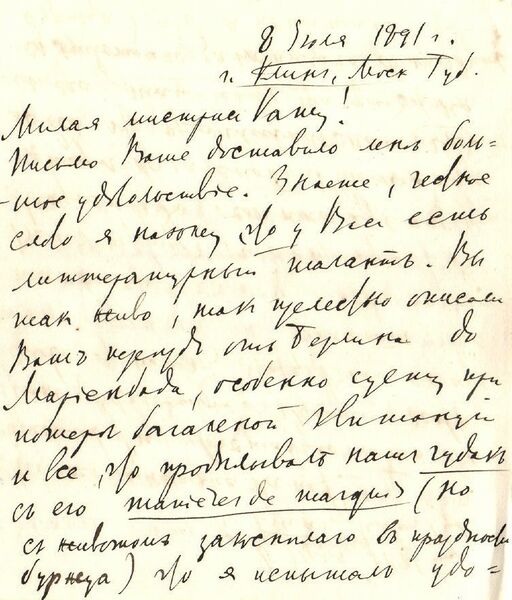 8 Июля 1891 г.
г. Клин, Моск Губ.
Милая мистрис
Письмо Ваше доставило мне боль=
-шое удовольствие. Знаете, честное
слово я нахожу что у Вас есть
литтературный талантъ. Вы
так живо, так прелестно описали
Вашъ переѣздъ отъ Берлина до
Маріенбада, особенно сцену при
потерѣ багажной квитанціи
и все, что продѣлывалъ нашъ чудакъ
съ его manières de marquis (но
съ животомъ
) что я испыталъ удо=